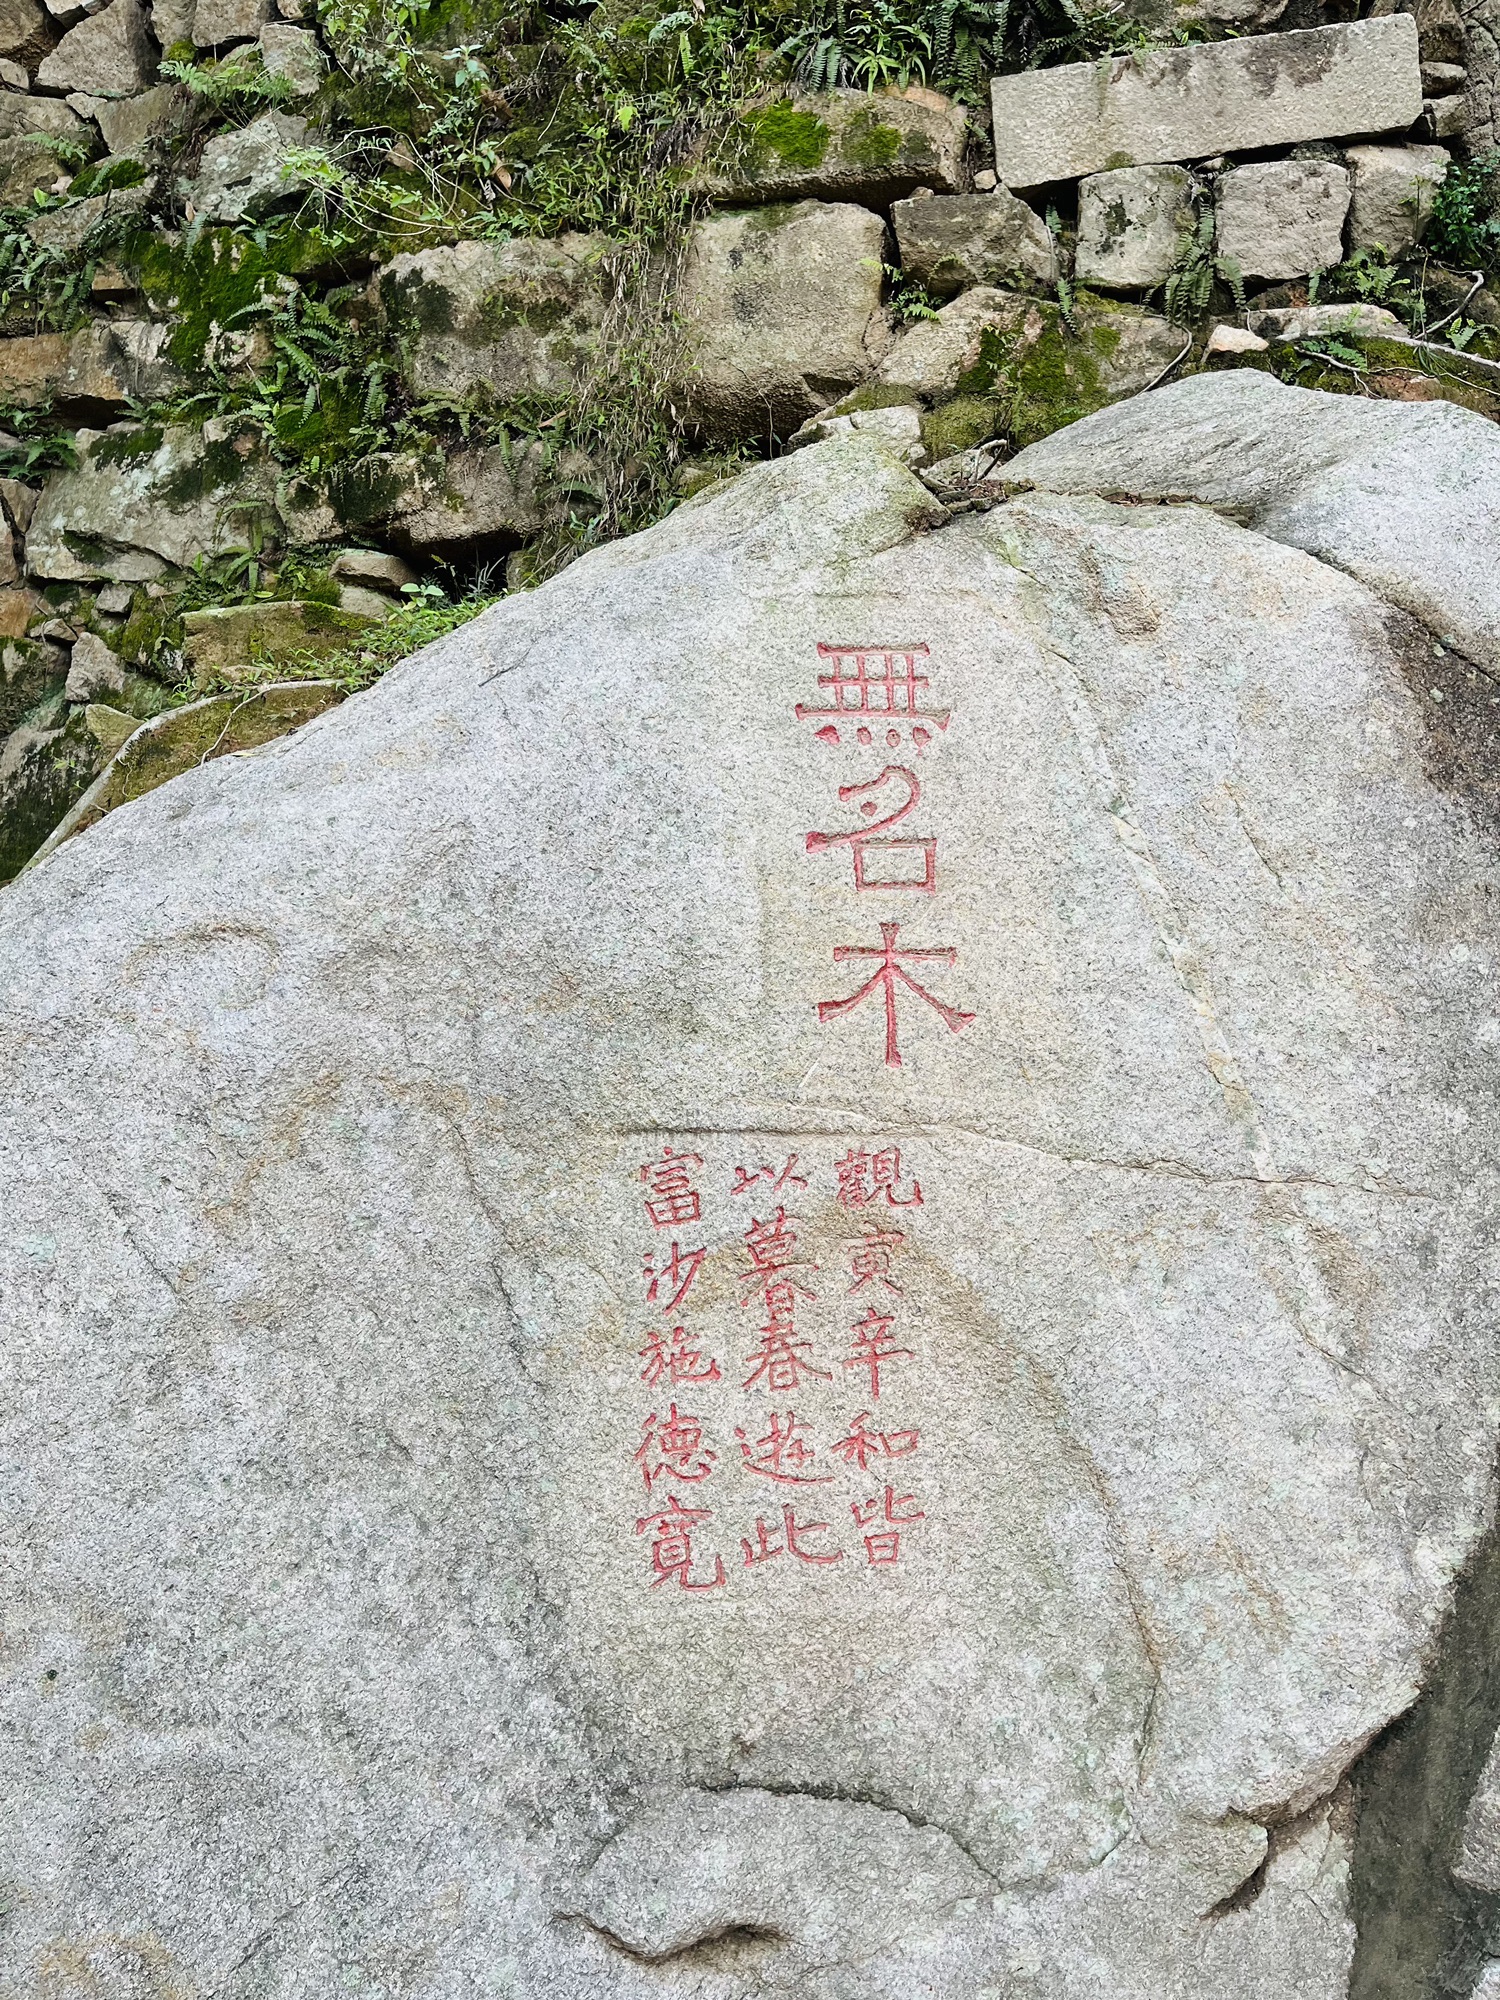 無名木
觀寅辛和皆
以暮春遊此
富沙施德寬